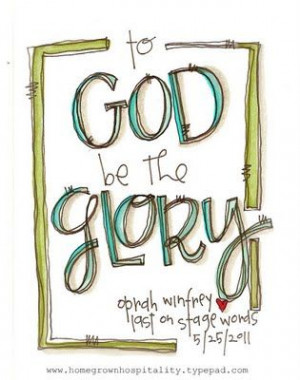 to
GOD
be the
GLORY
oprah winfrey
last on stage words
5/25/2011
www.homegrownhospitality.typepad.com